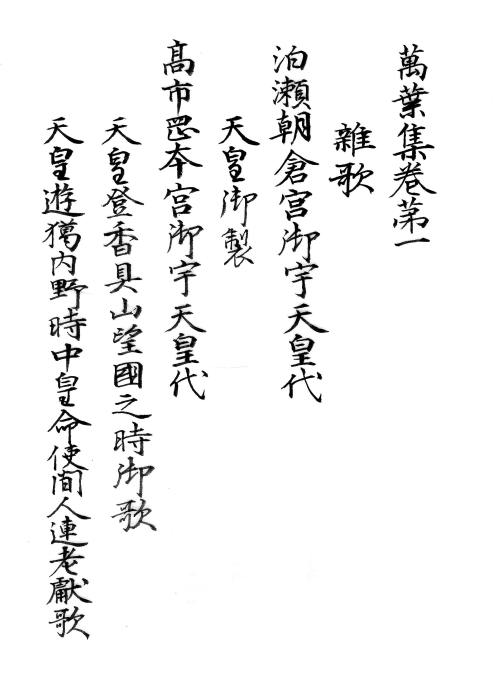 萬葉集卷第一
雜歌
泊瀬朝倉宮御宇天皇代
天皇御製
髙市罡夲宮御宇天皇代
天皇登香具山望國之時御歌
天皇遊獦内野時中皇命使間人連老獻歌